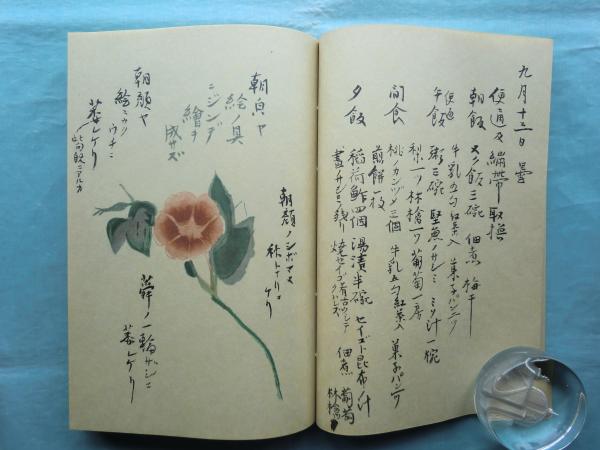 九月十三日 曇
便通及繃帯取換
朝飯 ヌク飯三碗 佃煮 梅干
牛乳五勺紅茶入 菓子パン二ツ
便通
午飯 粥三碗 堅魚ノサシミ ミソ汁一椀
梨一ツ 林檎一ツ 葡萄一房
間食 桃ノカンヅメ三個 牛乳五勺紅茶入 菓子パン一ツ
煎餅一枚
夕飯 稲荷鮓四個 湯漬半碗 セイゴト昆布ノ汁
昼ノサシミノ残リ 焼セイゴ 佃煮 葡萄
林檎
朝顔ノシボマヌ
秋トナリニケリ
朝皃ヤ
絵ノ具
ニジンデ
繪ヲ
成サズ
朝顔ヤ
絵ニカクウチニ
萎レケリ
蕣ノ一輪ザシニ
萎レケリ